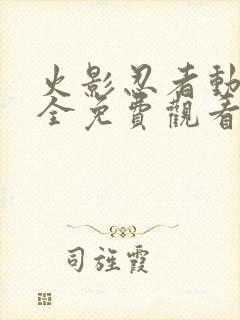 火影忍者動
全免費觀看
司旌霞